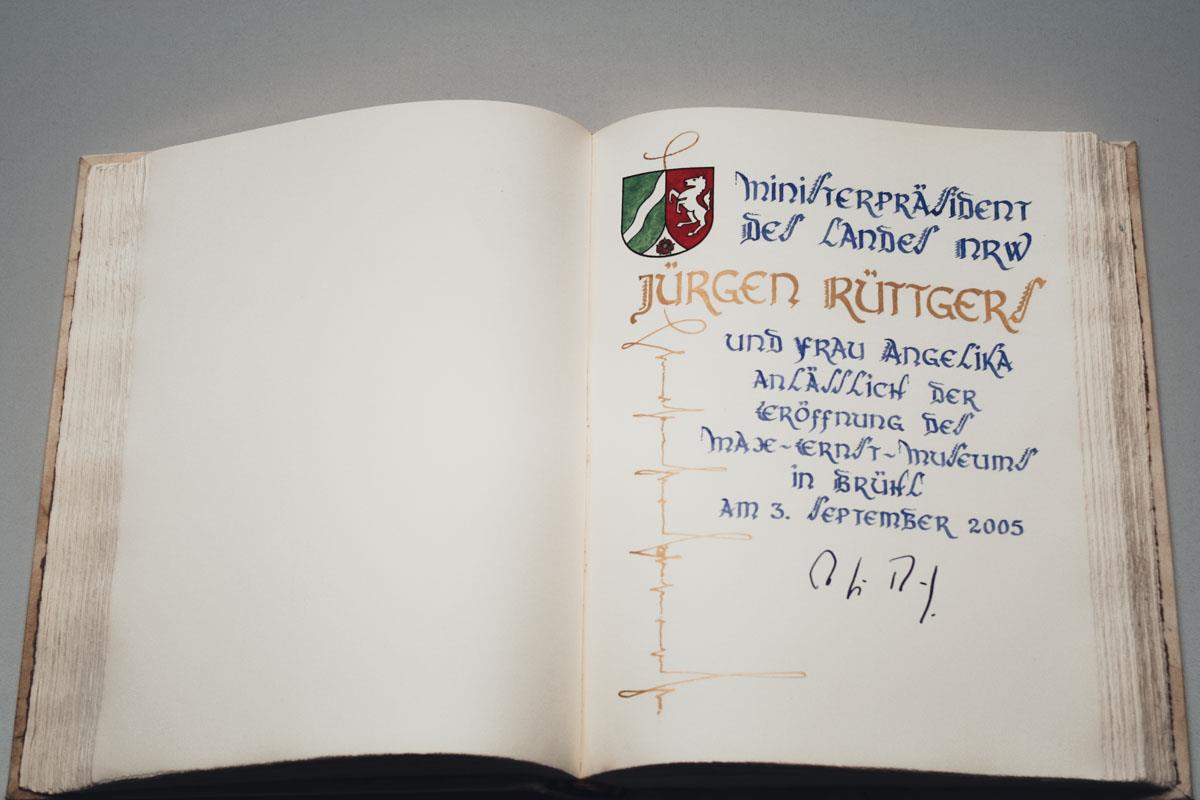 Ministerpräsident
des Landes NRW
Jürgen Rüttgers
und Frau Angelika
anlässlich der
Eröffnung des
Max-Ernst-Museums
in Brühl
am 3. September 2005